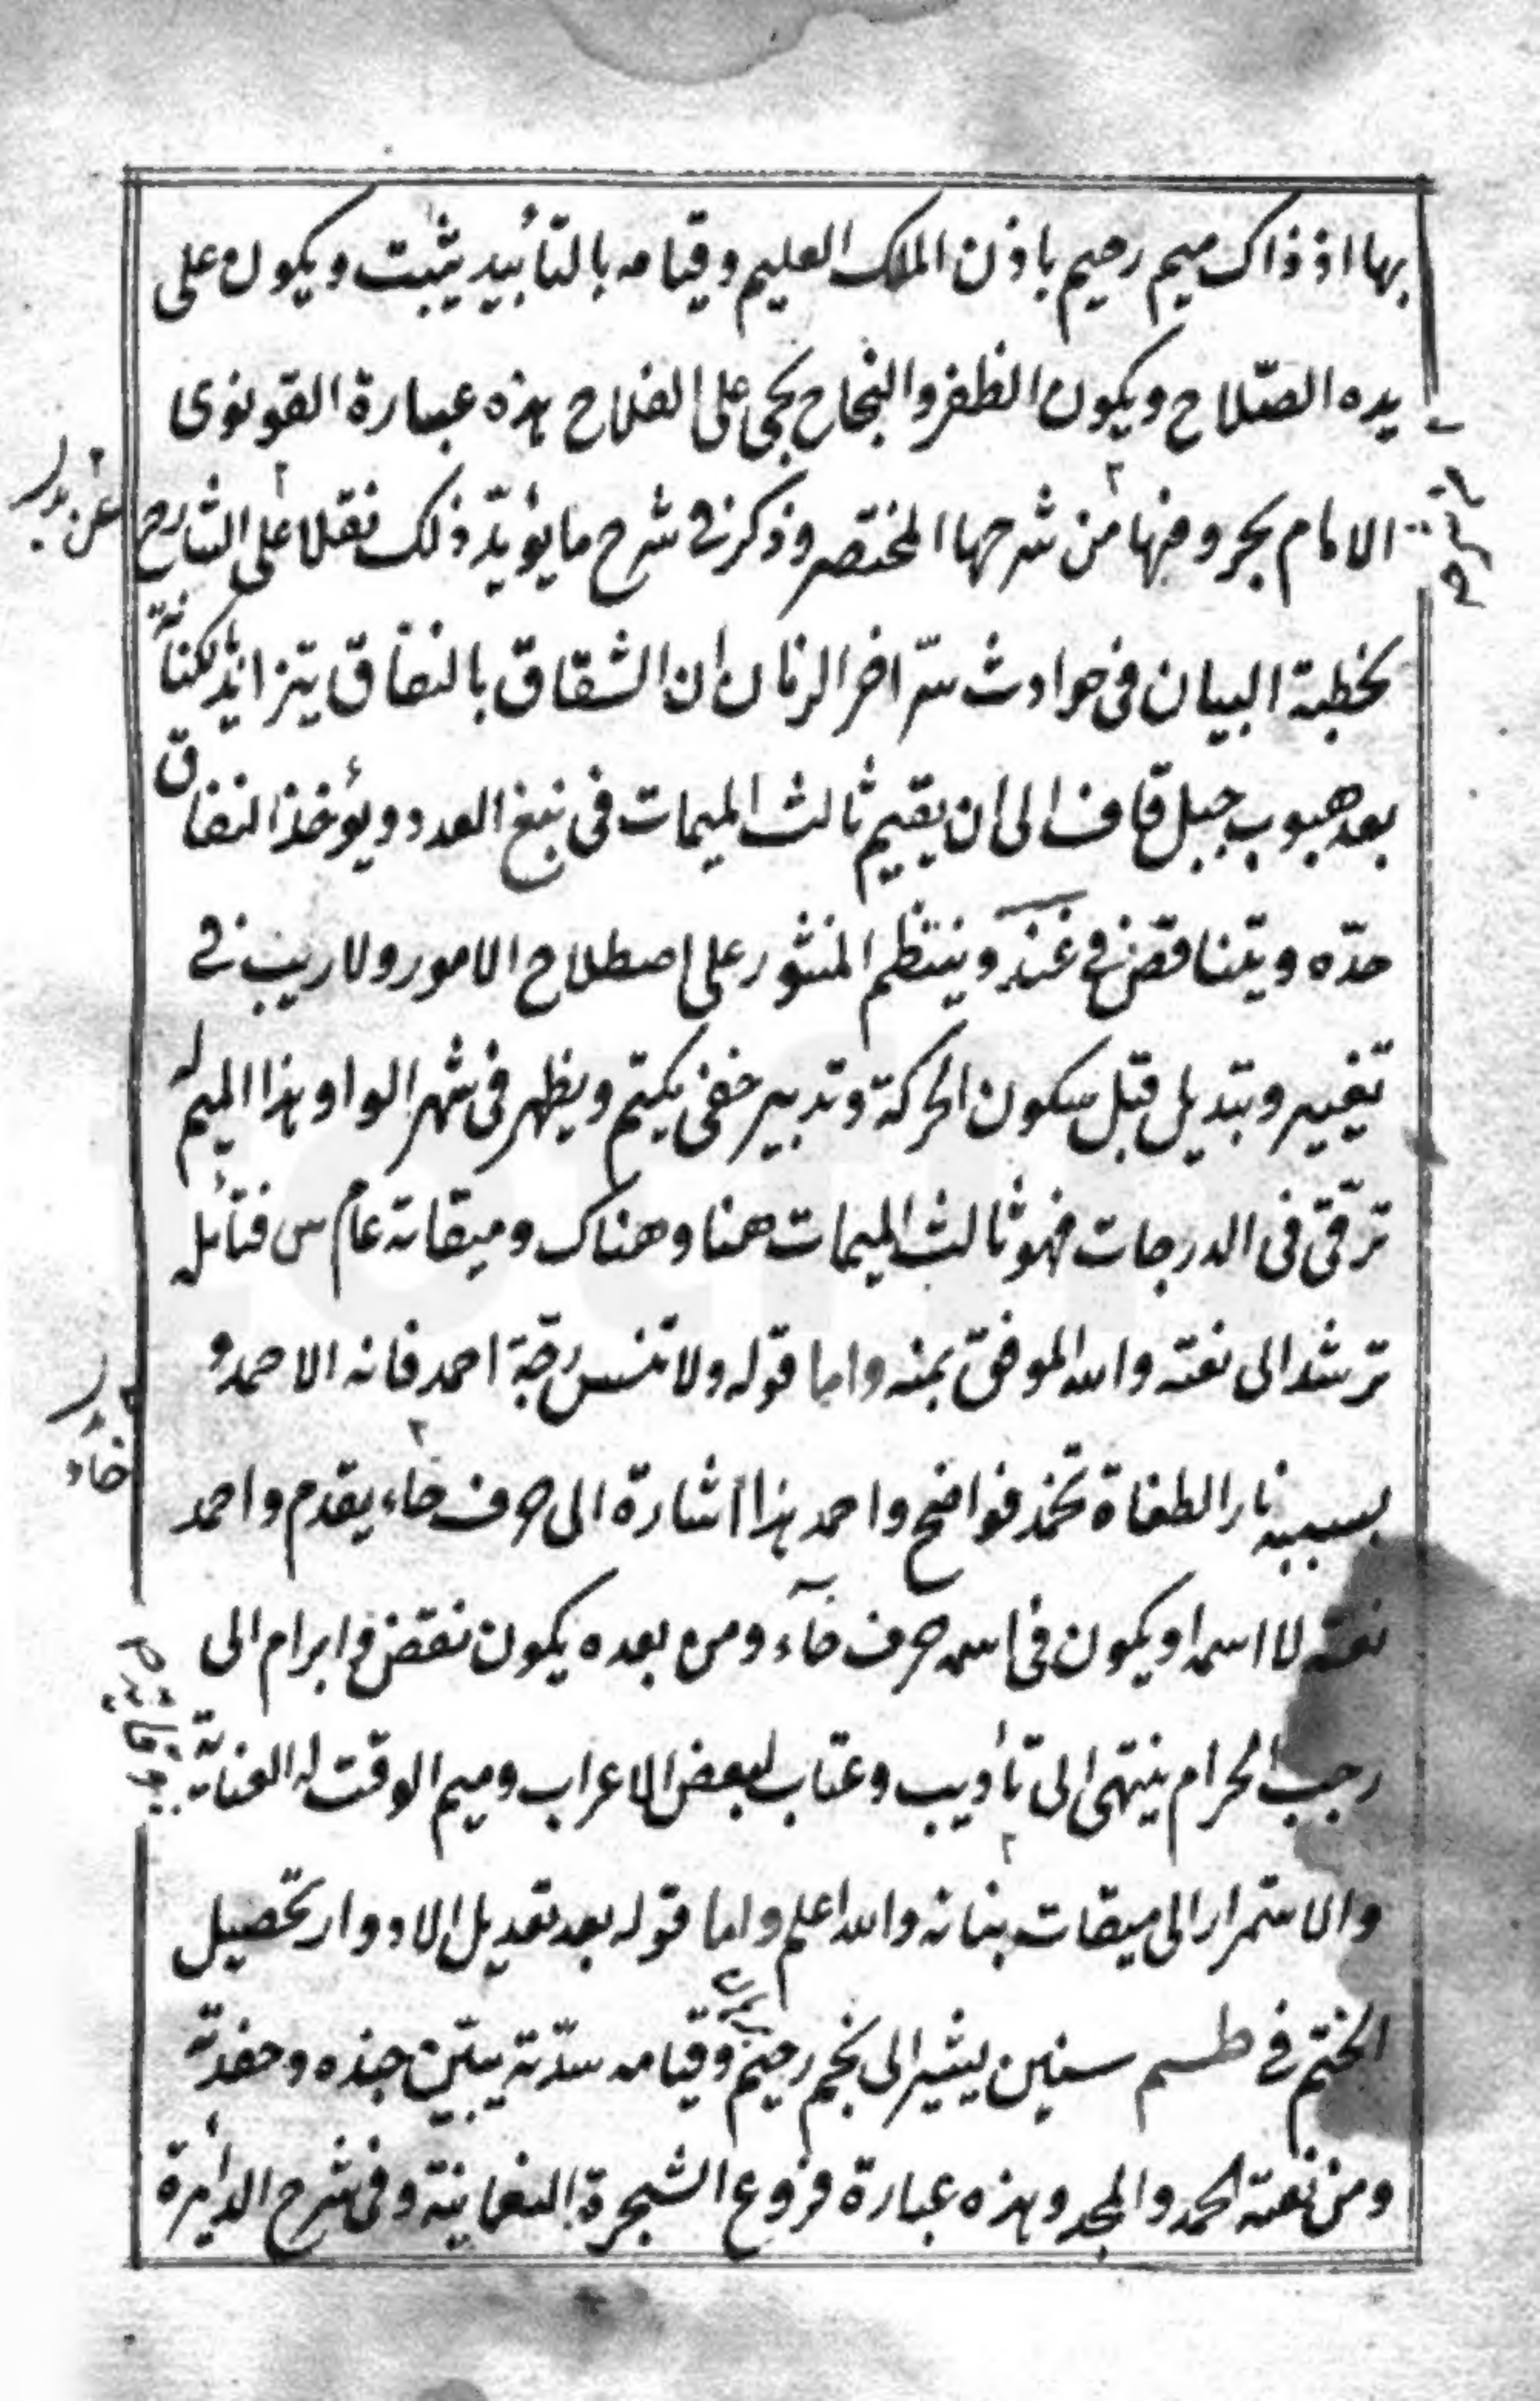 بها اذ ذاك ميم رحيم باذن الملك العليم وقيامه بالتأييد يثبت ويكون على
يده الصّلاح ويكون الظفر والنجاح بحى على الفلاح هذه عبارة القونوى
الامام بحروفها من شرحها المختصر وذكر فى شرح ما يؤيّد ذلك نقلا على الشارح
عن
بخطبة البيان فى حوادث سرّ اخر الزمان ان الشقاق بالنفاق يتزايد لكنانة
بعد هبوب جبل قاف الى ان يقيم ثالث الميمات فى العدد ويؤخذ النفاق
حدّه ويتناقض فى وينتظم المنثور على اصطلاح الامور ولا ريب فى
تغيير وتبديل قبل سكون الحركة وتدبير خفى يكتم ويظهر فى شهر الواو هذا الميم له
ترقّى فى الدرجات فهو ثالث الميمات هنا وهناك وميقاته عام س فتأمل
ترشد الى نعته والله الموفق بمنه واما قوله ولا تنس احمد فانه الاحمد و
بسببه نار الطغاة تخمد فواضح واحمد هذا اشارة الى حرف خاء يقدم واحمد
خاء
نعته لا اسمه او يكون فى اسمه حرف خآء ومن بعده يكون نقض وابرام الى
رجب الحرام ينتهى الى تأديب وعتاب لبعض الاعراب وميم الوقت له العناية
والاستمرار الى ميقات بنانه والله اعلم واما قوله بعد تعديل الادوار تحصيل
الختم فى طسم سنين يشير الى نجم رحيم وقيامه سدّته يبيّن جنده وحفدته
ومن نعته الحمد والمجد وهذه عبارة فروع الشجرة النعمانية وفى شرح الدائرة